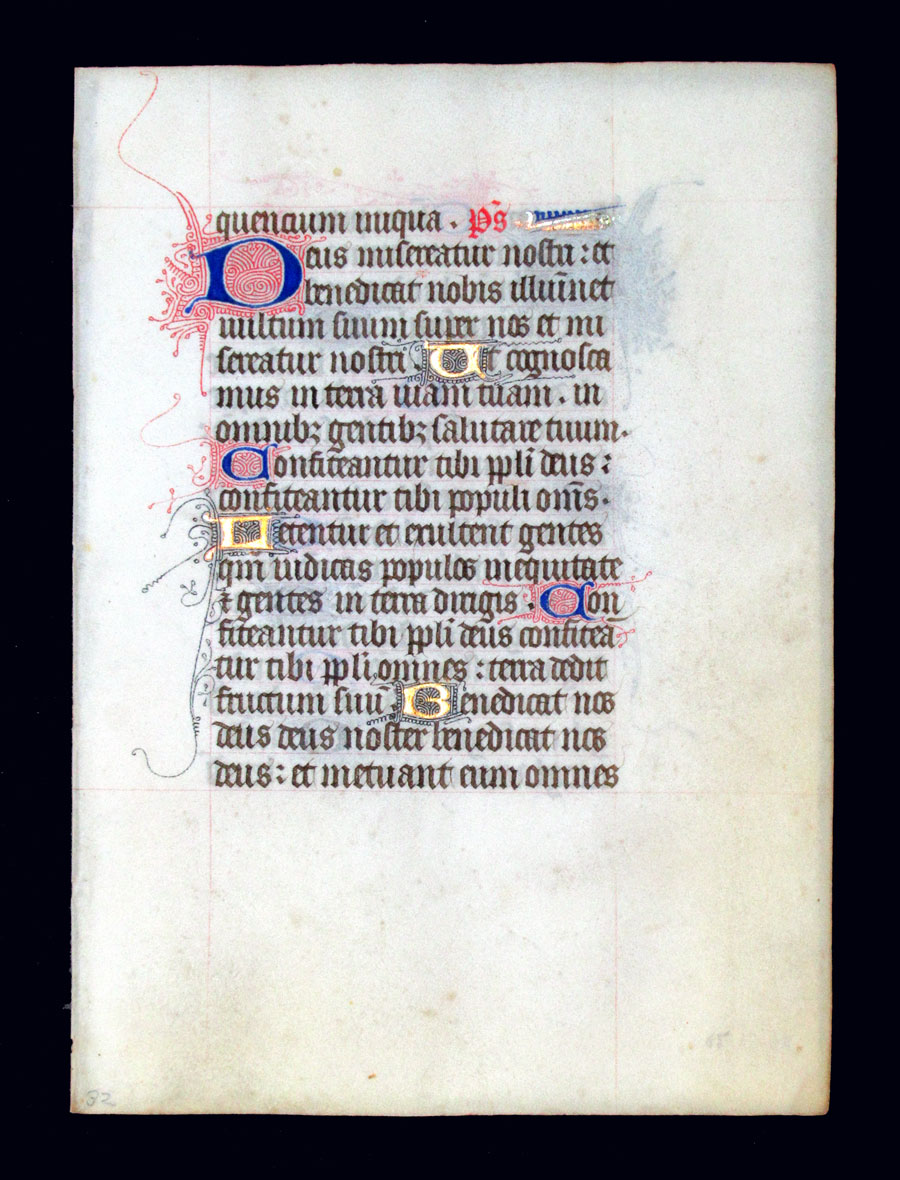 quencium iniqua . p̄s
Deus misereatur nostri : et
benedicat nobis illuīnet
vultum suum super nos et mi
sereatur nostri . Ut cognosca
mus in terra viam tuam . in
omnibꝫ gentibꝫ salutare tuum .
Confiteantur tibi ppl̄i deus :
confiteantur tibi populi om̄s .
Letentur et exultent gentes
qm̄ iudicas populos in equitate
⁊ gentes in terra dirigis . Con
fiteantur tibi ppl̄i deus confitea
tur tibi ppl̄i omnes : terra dedit
fructum suū . Benedicat nos
deus deus noster benedicat nos
deus : et metuant eum omnes
32